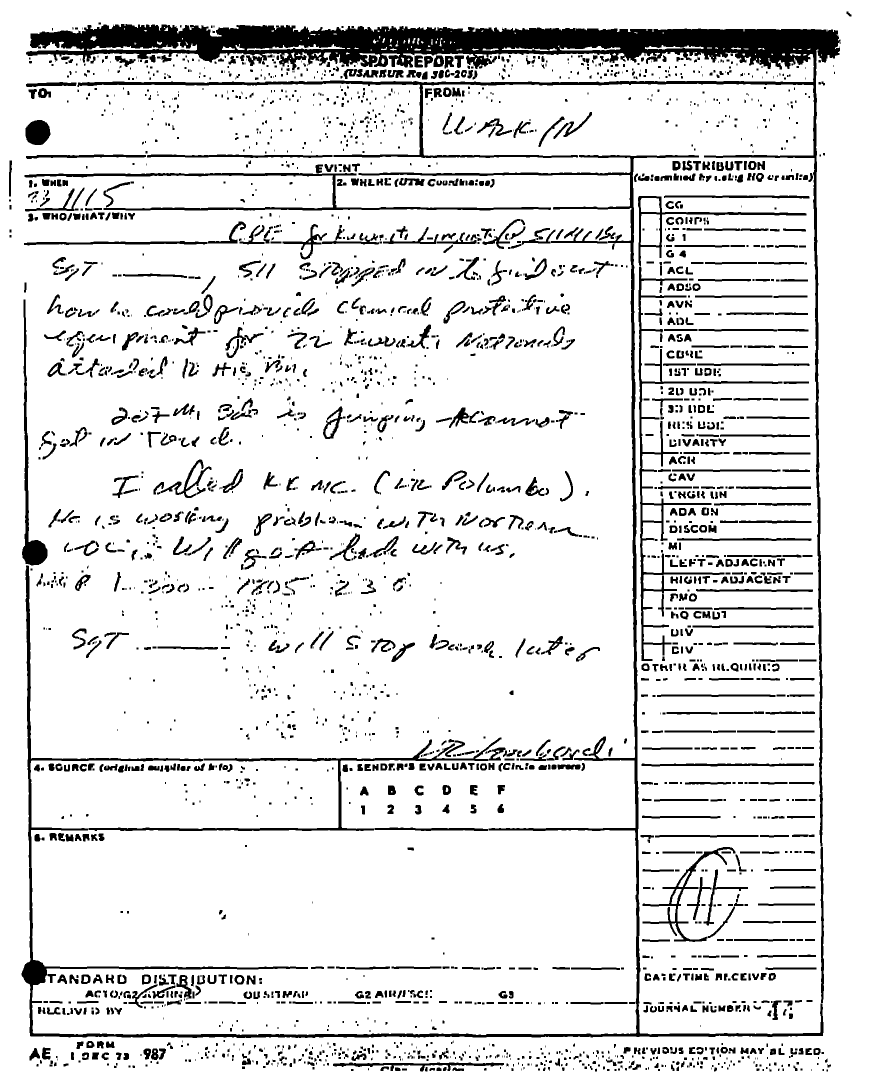 SPOT REPORT
(USAREUR Reg 380-205)
TO:
FROM:
WALK IN
EVENT
1. WHEN
23 1115
2. WHERE (UTM Coordinates)
3. WHO/WHAT/WHY
CPE for Kuwaiti Linguists @ 511 MI Bn
SGT ______, 511 stopped in to find out
how he could provide chemical protective
equipment for 22 Kuwaiti Nationals
attached to His Bn.
207 MI Bde is jumping - cannot
get in Touch.
I called KKMC. (LTC Palumbo).
He is working problem with Northern
Will get back with us.
1-300-1805-230
SGT ______ will stop back later
4. SOURCE (original supplier of info)
5. SENDER'S EVALUATION (Circle answers)
A B C D E F
1 2 3 4 5 6
6. REMARKS
STANDARD DISTRIBUTION:
ACTO/G2 JOURNAL OB SITMAP G2 AIR/FSCE G3
RECEIVED BY
DISTRIBUTION
(determined by using HQ or units)
CG
CORPS
G 1
G 4
ACL
ADSO
AVN
ADL
ASA
CBRE
1ST BDE
2D BDE
3D BDE
RES BDE
DIVARTY
ACR
CAV
ENGR BN
ADA BN
DISCOM
MI
LEFT-ADJACENT
RIGHT-ADJACENT
PMO
HQ CMDT
DIV
DIV
OTHER AS REQUIRED
11
DATE/TIME RECEIVED
JOURNAL NUMBER
AE FORM 1 DEC 73 987
PREVIOUS EDITION MAY BE USED.